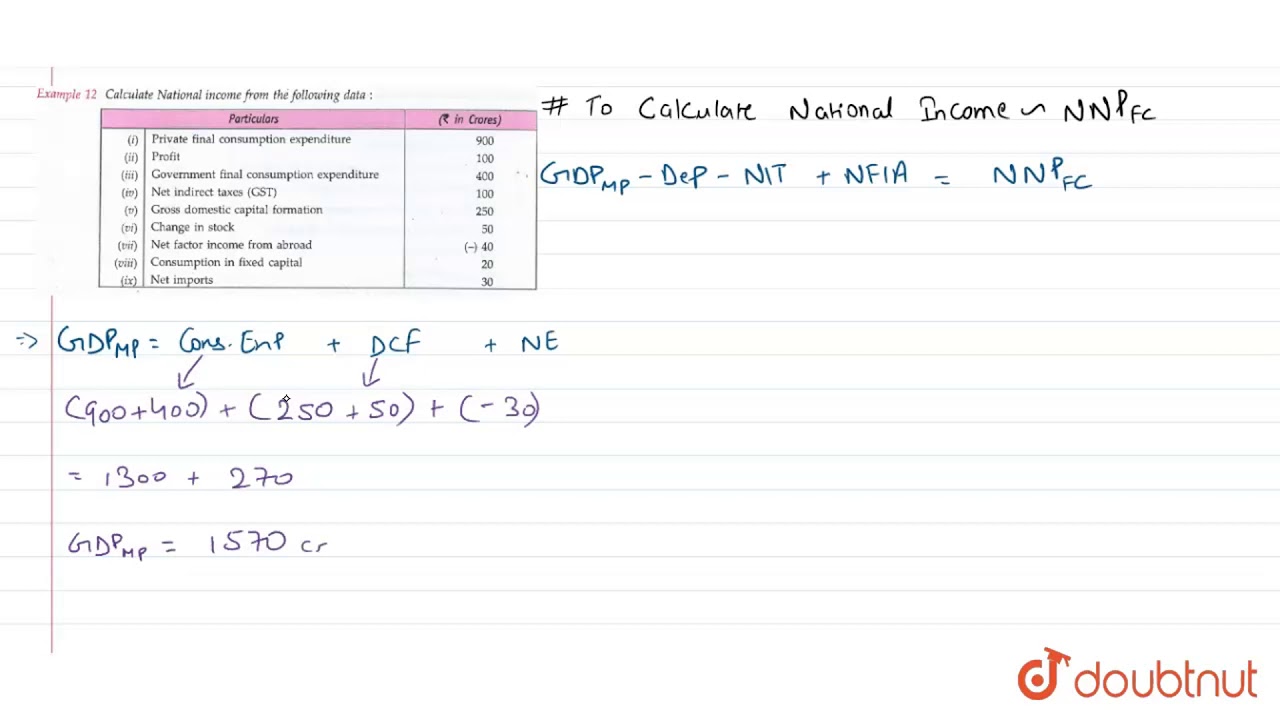 Example 12 Calculate National income from the following data :
Particulars (₹ in Crores)
(i) Private final consumption expenditure 900
(ii) Profit 100
(iii) Government final consumption expenditure 400
(iv) Net indirect taxes (GST) 100
(v) Gross domestic capital formation 250
(vi) Change in stock 50
(vii) Net factor income from abroad (–) 40
(viii) Consumption in fixed capital 20
(ix) Net imports 30
# To Calculate National Income ~ NNP FC
GDP MP - Dep - NIT + NFIA = NNP FC
=> GDP MP = Cons. Exp + DCF + NE
(900+400) + (250 + 50) + (- 30)
= 1300 + 270
GDP MP = 1570 cr
doubtnut